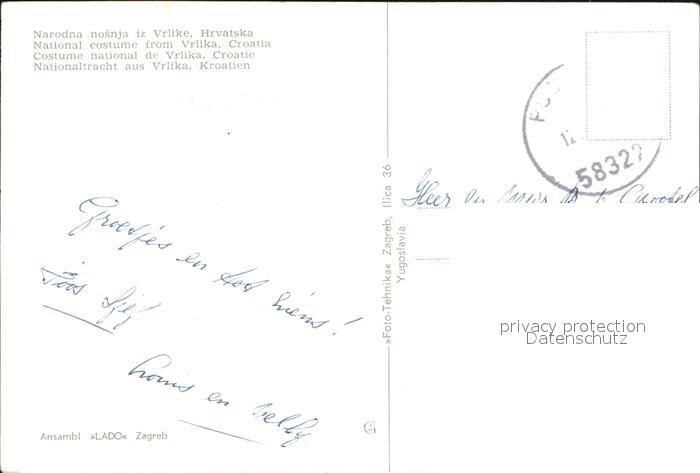 Narodna nošnja iz Vrlike, Hrvatska
National costume from Vrlika, Croatia
Costume national de Vrlika, Croatie
Nationaltracht aus Vrlika, Kroatien
58327
Heer en
Groetjes en tot ziens!
Toos
Louis en Nelly.
»Foto-Tehnika« Zagreb, Ilica 36
Yugoslavia
privacy protection
Datenschutz
Ansambl »LADO« Zagreb